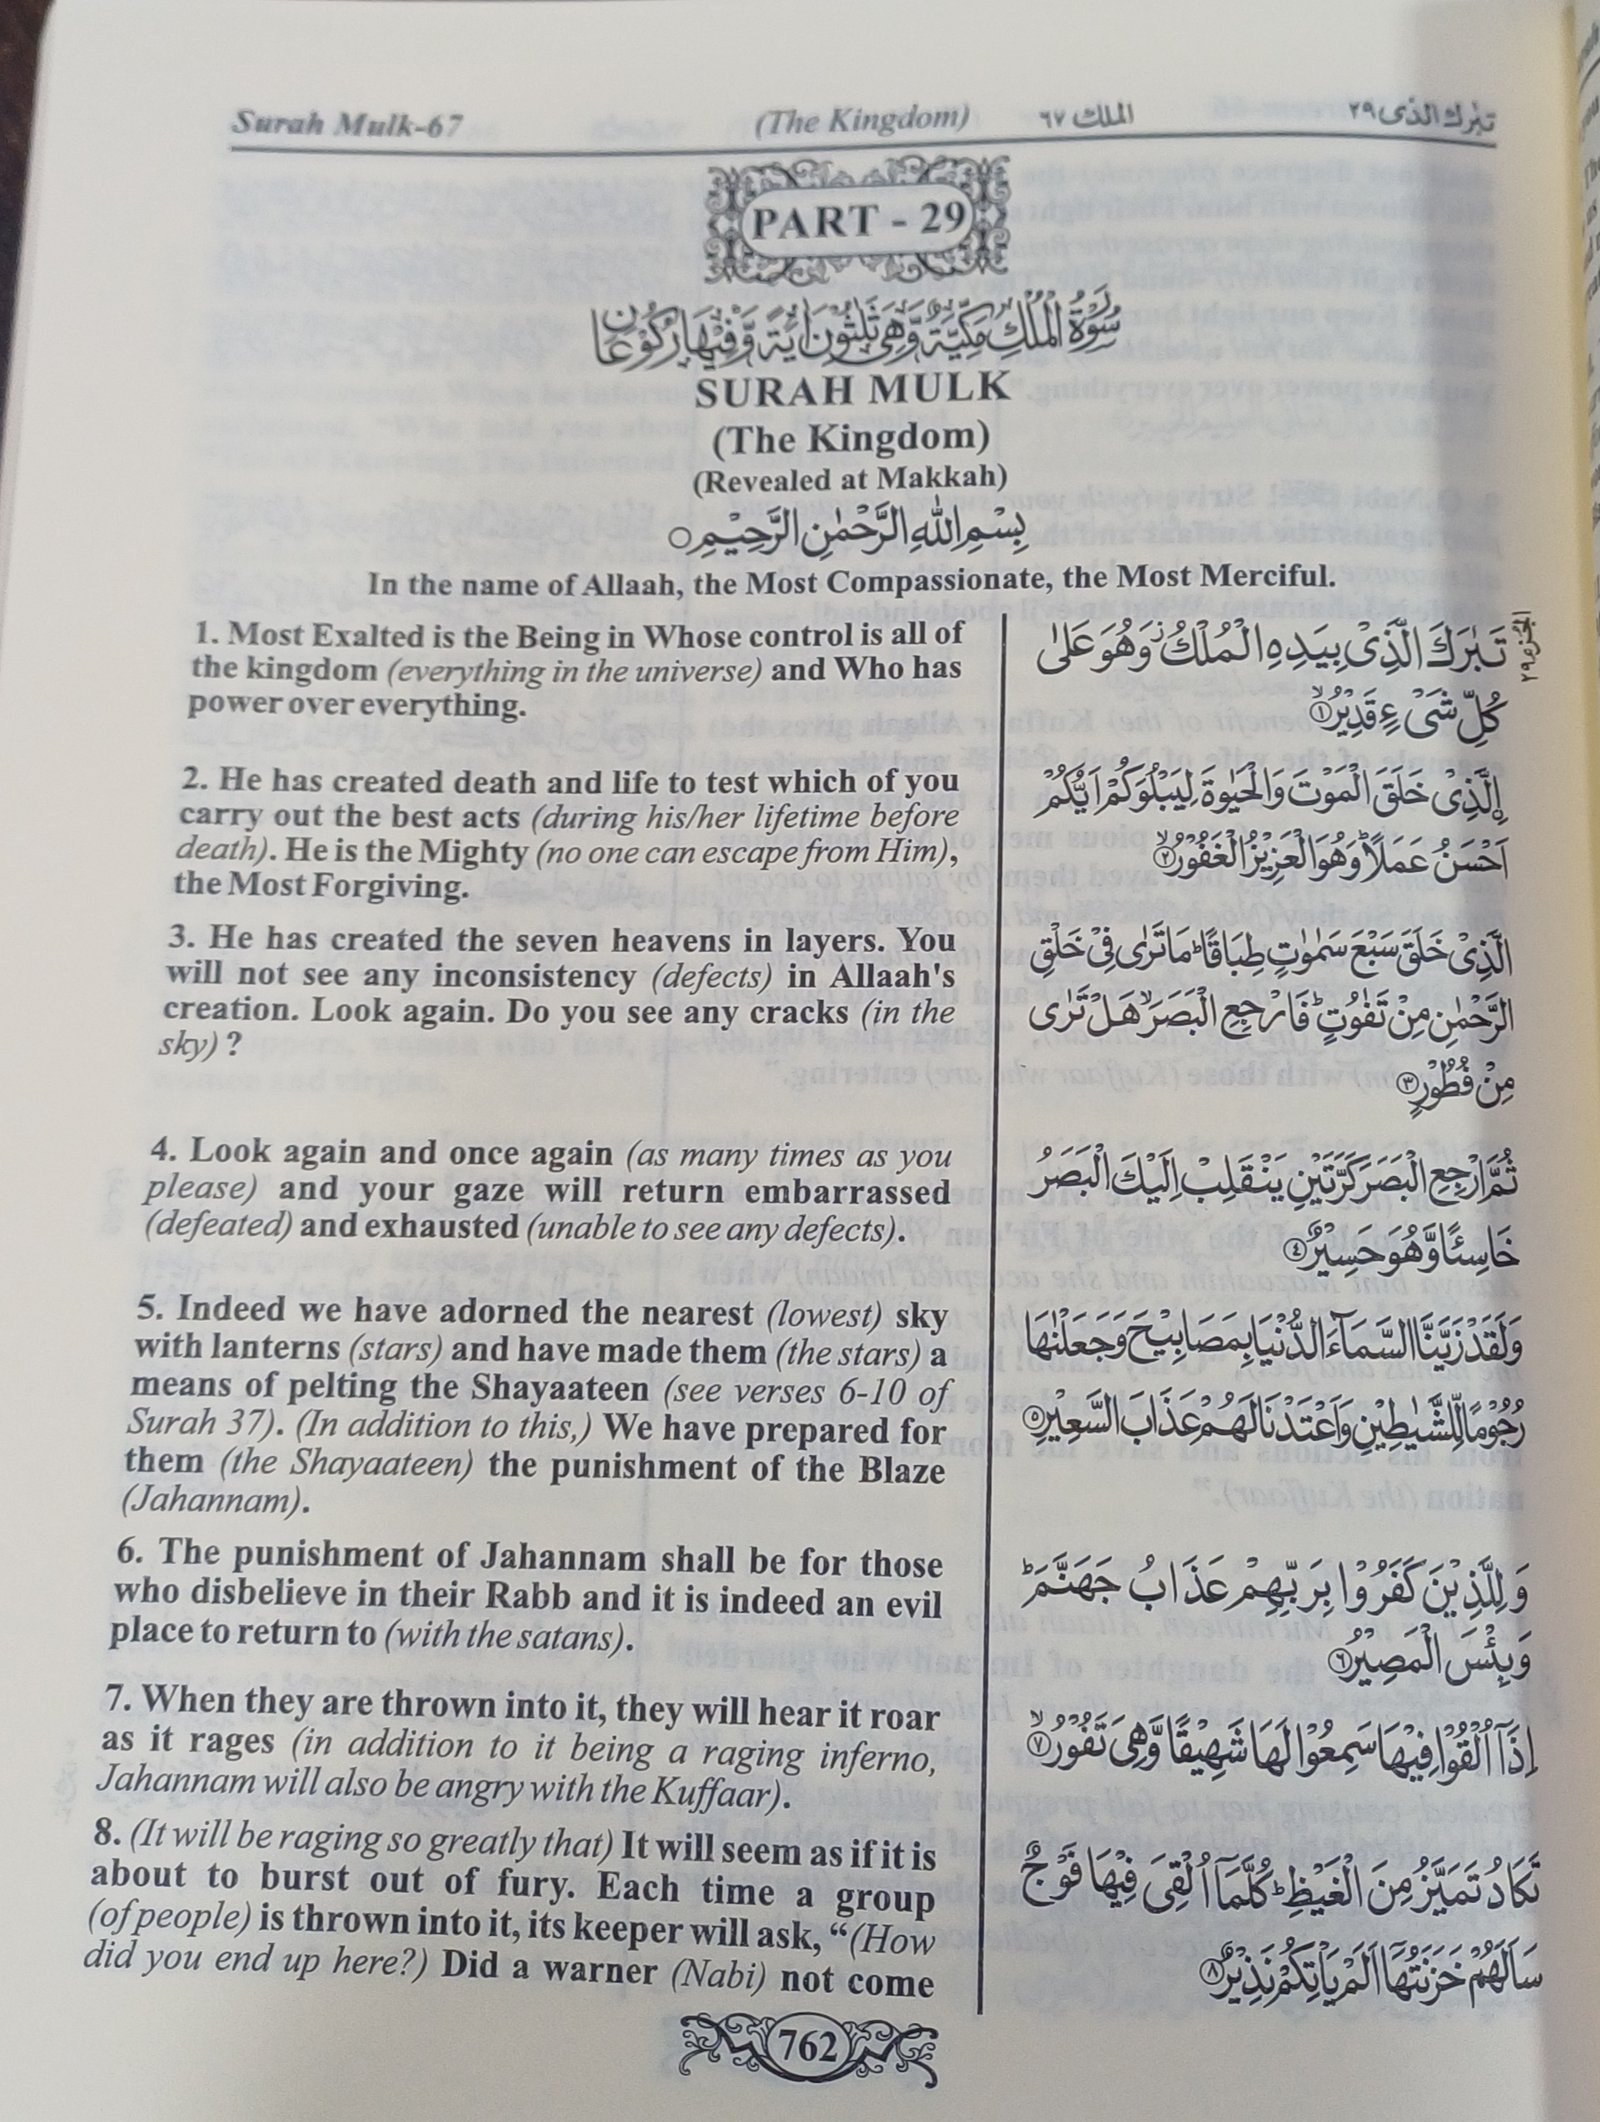 Surah Mulk-67 (The Kingdom) الملك ٦٧ تبٰرك الذى ٢٩
PART - 29
سُوْرَةُ الْمُلْكِ مَكِّيَّةٌ وَّهِىَ ثَلٰثُوْنَ اٰيَةً وَّفِيْهَا رُكُوْعَانِ
SURAH MULK
(The Kingdom)
(Revealed at Makkah)
بِسْمِ اللّٰهِ الرَّحْمٰنِ الرَّحِيْمِ
In the name of Allaah, the Most Compassionate, the Most Merciful.
1. Most Exalted is the Being in Whose control is all of
the kingdom (everything in the universe) and Who has
power over everything.
2. He has created death and life to test which of you
carry out the best acts (during his/her lifetime before
death). He is the Mighty (no one can escape from Him),
the Most Forgiving.
3. He has created the seven heavens in layers. You
will not see any inconsistency (defects) in Allaah's
creation. Look again. Do you see any cracks (in the
sky) ?
4. Look again and once again (as many times as you
please) and your gaze will return embarrassed
(defeated) and exhausted (unable to see any defects).
5. Indeed we have adorned the nearest (lowest) sky
with lanterns (stars) and have made them (the stars) a
means of pelting the Shayaateen (see verses 6-10 of
Surah 37). (In addition to this,) We have prepared for
them (the Shayaateen) the punishment of the Blaze
(Jahannam).
6. The punishment of Jahannam shall be for those
who disbelieve in their Rabb and it is indeed an evil
place to return to (with the satans).
7. When they are thrown into it, they will hear it roar
as it rages (in addition to it being a raging inferno,
Jahannam will also be angry with the Kuffaar).
8. (It will be raging so greatly that) It will seem as if it is
about to burst out of fury. Each time a group
(of people) is thrown into it, its keeper will ask, “(How
did you end up here?) Did a warner (Nabi) not come
الجزء ٢٩
تَبٰرَكَ الَّذِىْ بِيَدِهِ الْمُلْكُ ز وَهُوَ عَلٰى
كُلِّ شَىْءٍ قَدِيْرُ ۙ ١
اِۨلَّذِىْ خَلَقَ الْمَوْتَ وَالْحَيٰوةَ لِيَبْلُوَكُمْ اَيُّكُمْ
اَحْسَنُ عَمَلًا ؕ وَهُوَ الْعَزِيْزُ الْغَفُوْرُ ۙ ٢
الَّذِىْ خَلَقَ سَبْعَ سَمٰوٰتٍ طِبَاقًا ؕ مَا تَرٰى فِىْ خَلْقِ
الرَّحْمٰنِ مِنْ تَفٰوُتٍ ؕ فَارْجِعِ الْبَصَرَ ۙ هَلْ تَرٰى
مِنْ فُطُوْرٍ ٣
ثُمَّ ارْجِعِ الْبَصَرَ كَرَّتَيْنِ يَنْقَلِبْ اِلَيْكَ الْبَصَرُ
خَاسِئًا وَّهُوَ حَسِيْرٌ ٤
وَلَقَدْ زَيَّنَّا السَّمَآءَ الدُّنْيَا بِمَصَابِيْحَ وَجَعَلْنٰهَا
رُجُوْمًا لِّلشَّيٰطِيْنِ وَاَعْتَدْنَا لَهُمْ عَذَابَ السَّعِيْرِ ٥
وَلِلَّذِيْنَ كَفَرُوْا بِرَبِّهِمْ عَذَابُ جَهَنَّمَ ؕ
وَبِئْسَ الْمَصِيْرُ ٦
اِذَآ اُلْقُوْا فِيْهَا سَمِعُوْا لَهَا شَهِيْقًا وَّهِىَ تَفُوْرُ ۙ ٧
تَكَادُ تَمَيَّزُ مِنَ الْغَيْظِ ؕ كُلَّمَآ اُلْقِىَ فِيْهَا فَوْجٌ
سَاَلَهُمْ خَزَنَتُهَآ اَلَمْ يَاْتِكُمْ نَذِيْرٌ ٨
762